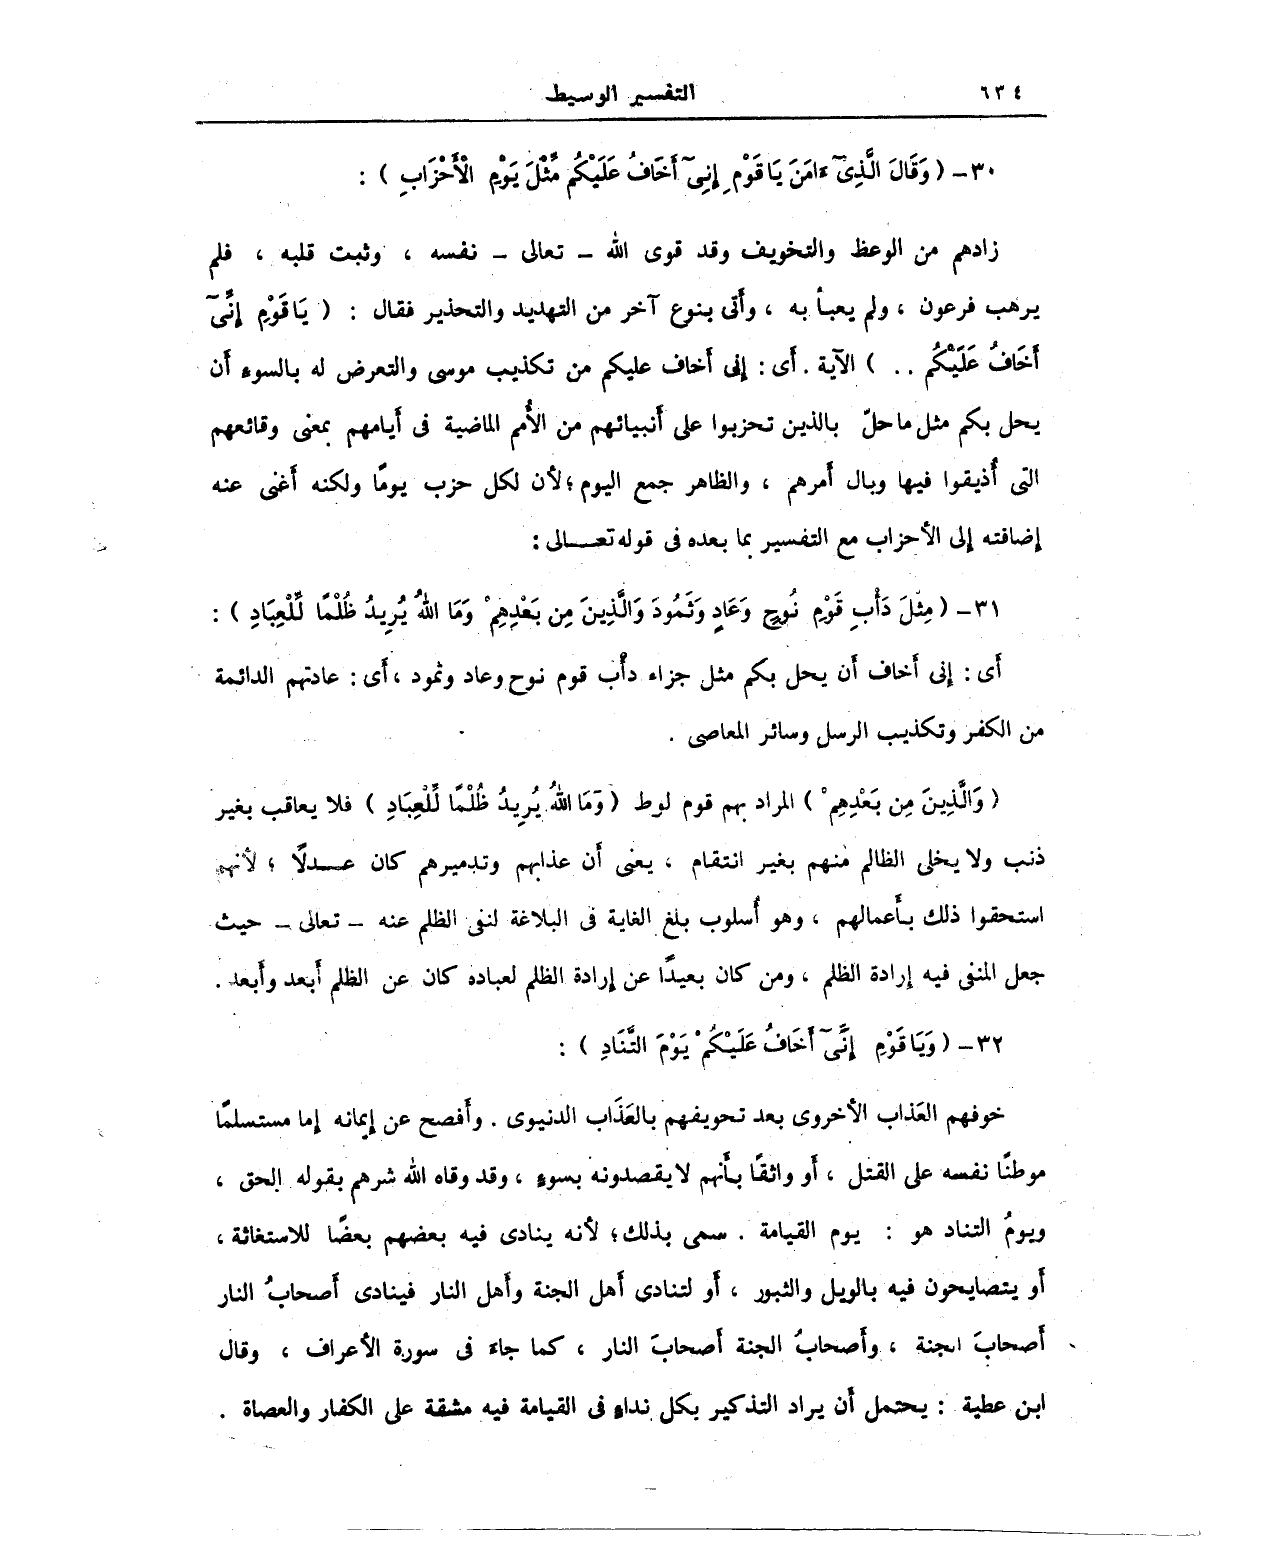 ٦٣٤
التفسير الوسيط
٣٠- ( وَقَالَ الَّذِىٓ ءَامَنَ يَا قَوْمِ إِنِّىٓ أَخَافُ عَلَيْكُم مِّثْلَ يَوْمِ الْأَحْزَابِ ) :
زادهم من الوعظ والتخويف وقد قوى الله – تعالى – نفسه ، وثبت قلبه ، فلم
يرهب فرعون ، ولم يعبأ به ، وأَتى بنوع آخر من التهديد والتحذير فقال : ( يَا قَوْمِ إِنِّىٓ
أَخَافُ عَلَيْكُم . . ) الآية . أَى : إنى أخاف عليكم من تكذيب موسى والتعرض له بالسوءِ أَن
يحل بكم مثل ما حلّ بالذين تحزبوا على أَنبيائهم من الأُمم الماضية فى أَيامهم بمعنى وقائعهم
التى أُذيقوا فيها وبال أَمرهم ، والظاهر جمع اليوم ؛ لأَن لكل حزب يومًا ولكنه أَغنى عنه
إضافته إلى الأَحزاب مع التفسير بما بعده فى قوله تعـــالى :
٣١- ( مِثْلَ دَأْبِ قَوْمِ نُوحٍ وَعَادٍ وَثَمُودَ وَالَّذِينَ مِن بَعْدِهِمْ وَمَا اللهُ يُرِيدُ ظُلْمًا لِّلْعِبَادِ ) :
أَى : إنى أَخاف أَن يحل بكم مثل جزاء دأْب قوم نوح وعاد وثمود ، أَى : عادتهم الدائمة
من الكفر وتكذيب الرسل وسائر المعاصى .
( وَالَّذِينَ مِن بَعْدِهِمْ ) المراد بهم قوم لوط ( وَمَا اللهُ يُرِيدُ ظُلْمًا لِّلْعِبَادِ ) فلا يعاقب بغير
ذنب ولا يخلى الظالم منهم بغير انتقام ، يعنى أَن عذابهم وتدميرهم كان عـــدلًا ؛ لأَنهم
استحقوا ذلك بأَعمالهم ، وهو أُسلوب بلغ الغاية فى البلاغة لنفى الظلم عنه – تعالى – حيث
جعل المنفى فيه إرادة الظلم ، ومن كان بعيدًا عن إرادة الظلم لعباده كان عن الظلم أَبعد وأَبعد .
٣٢- ( وَيَا قَوْمِ إِنِّىٓ أَخَافُ عَلَيْكُمْ يَوْمَ التَّنَادِ ) :
خوفهم العَذاب الأُخروى بعد تحويفهم بالعَذَاب الدنيوى . وأَفصح عن إيمانه إما مستسلمًا
موطنًا نفسه على القتل ، أَو واثقًا بأَنهم لا يقصدونه بسوءٍ ، وقد وقاه الله شرهم بقوله الحق ،
ويومُ التناد هو : يوم القيامة . سمى بذلك ؛ لأَنه ينادى فيه بعضهم بعضًا للاستغاثة ،
أَو يتصايحون فيه بالويل والثبور ، أَو لتنادى أَهل الجنة وأَهل النار فينادى أَصحابُ النار
أَصحابَ الجنة ، وأَصحابُ الجنة أَصحابَ النار ، كما جاءَ فى سورة الأَعراف ، وقال
ابن عطية : يحتمل أَن يراد التذكير بكل نداءٍ فى القيامة فيه مشقة على الكفار والعصاة .